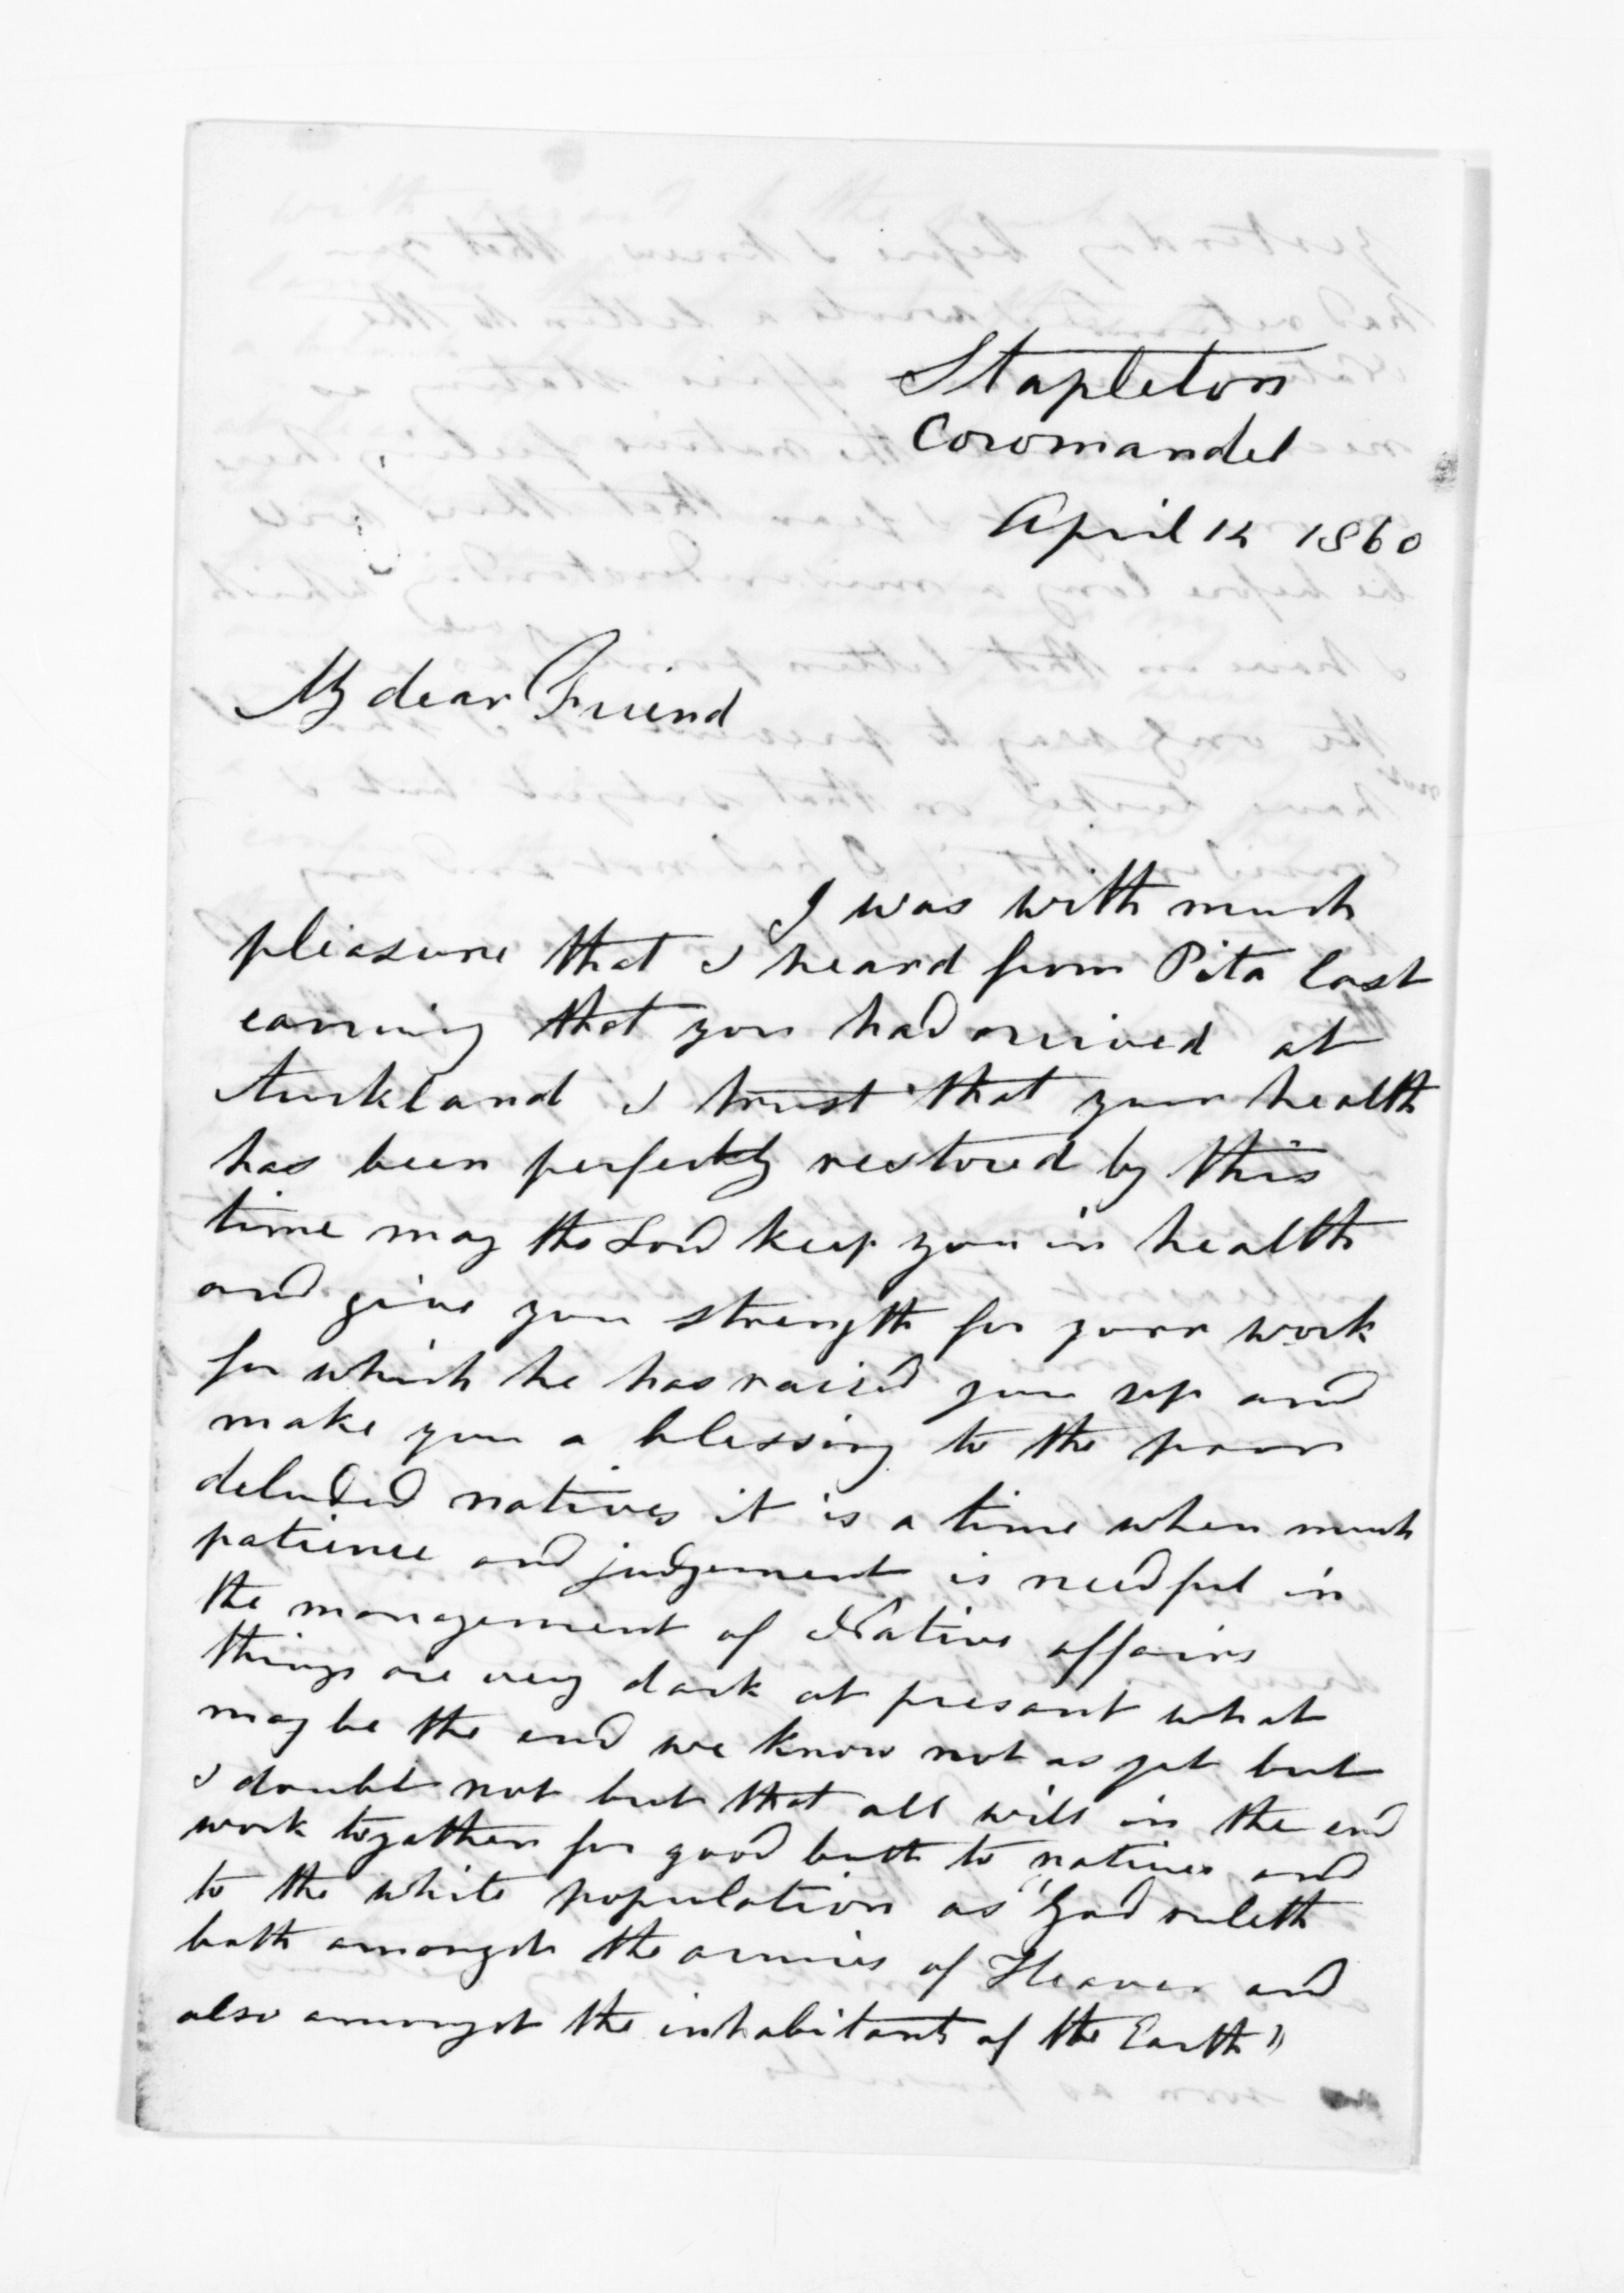 Stapleton
Coromandel
April 12 1860
My dear Friend
I was with much
pleasure that I heard from Pita last
eavning that you had arrived at
Auckland I trust that your health
has been perfectly restored by this
time may the Lord keep you in health
and give you strength for your work
for which he has raised you up and
make you a blessing to the poor
deluded natives it is a time when much
patience and judgement is needful in
the management of Native affairs
things are very dark at presant what
may be the end we know not as yet but
I doubt not but that all will in the end
work togather for good both to natives and
to the white population as "God ruleth
both amongst the armies of Heaven and
also amongst the inhabitants of the Earth"